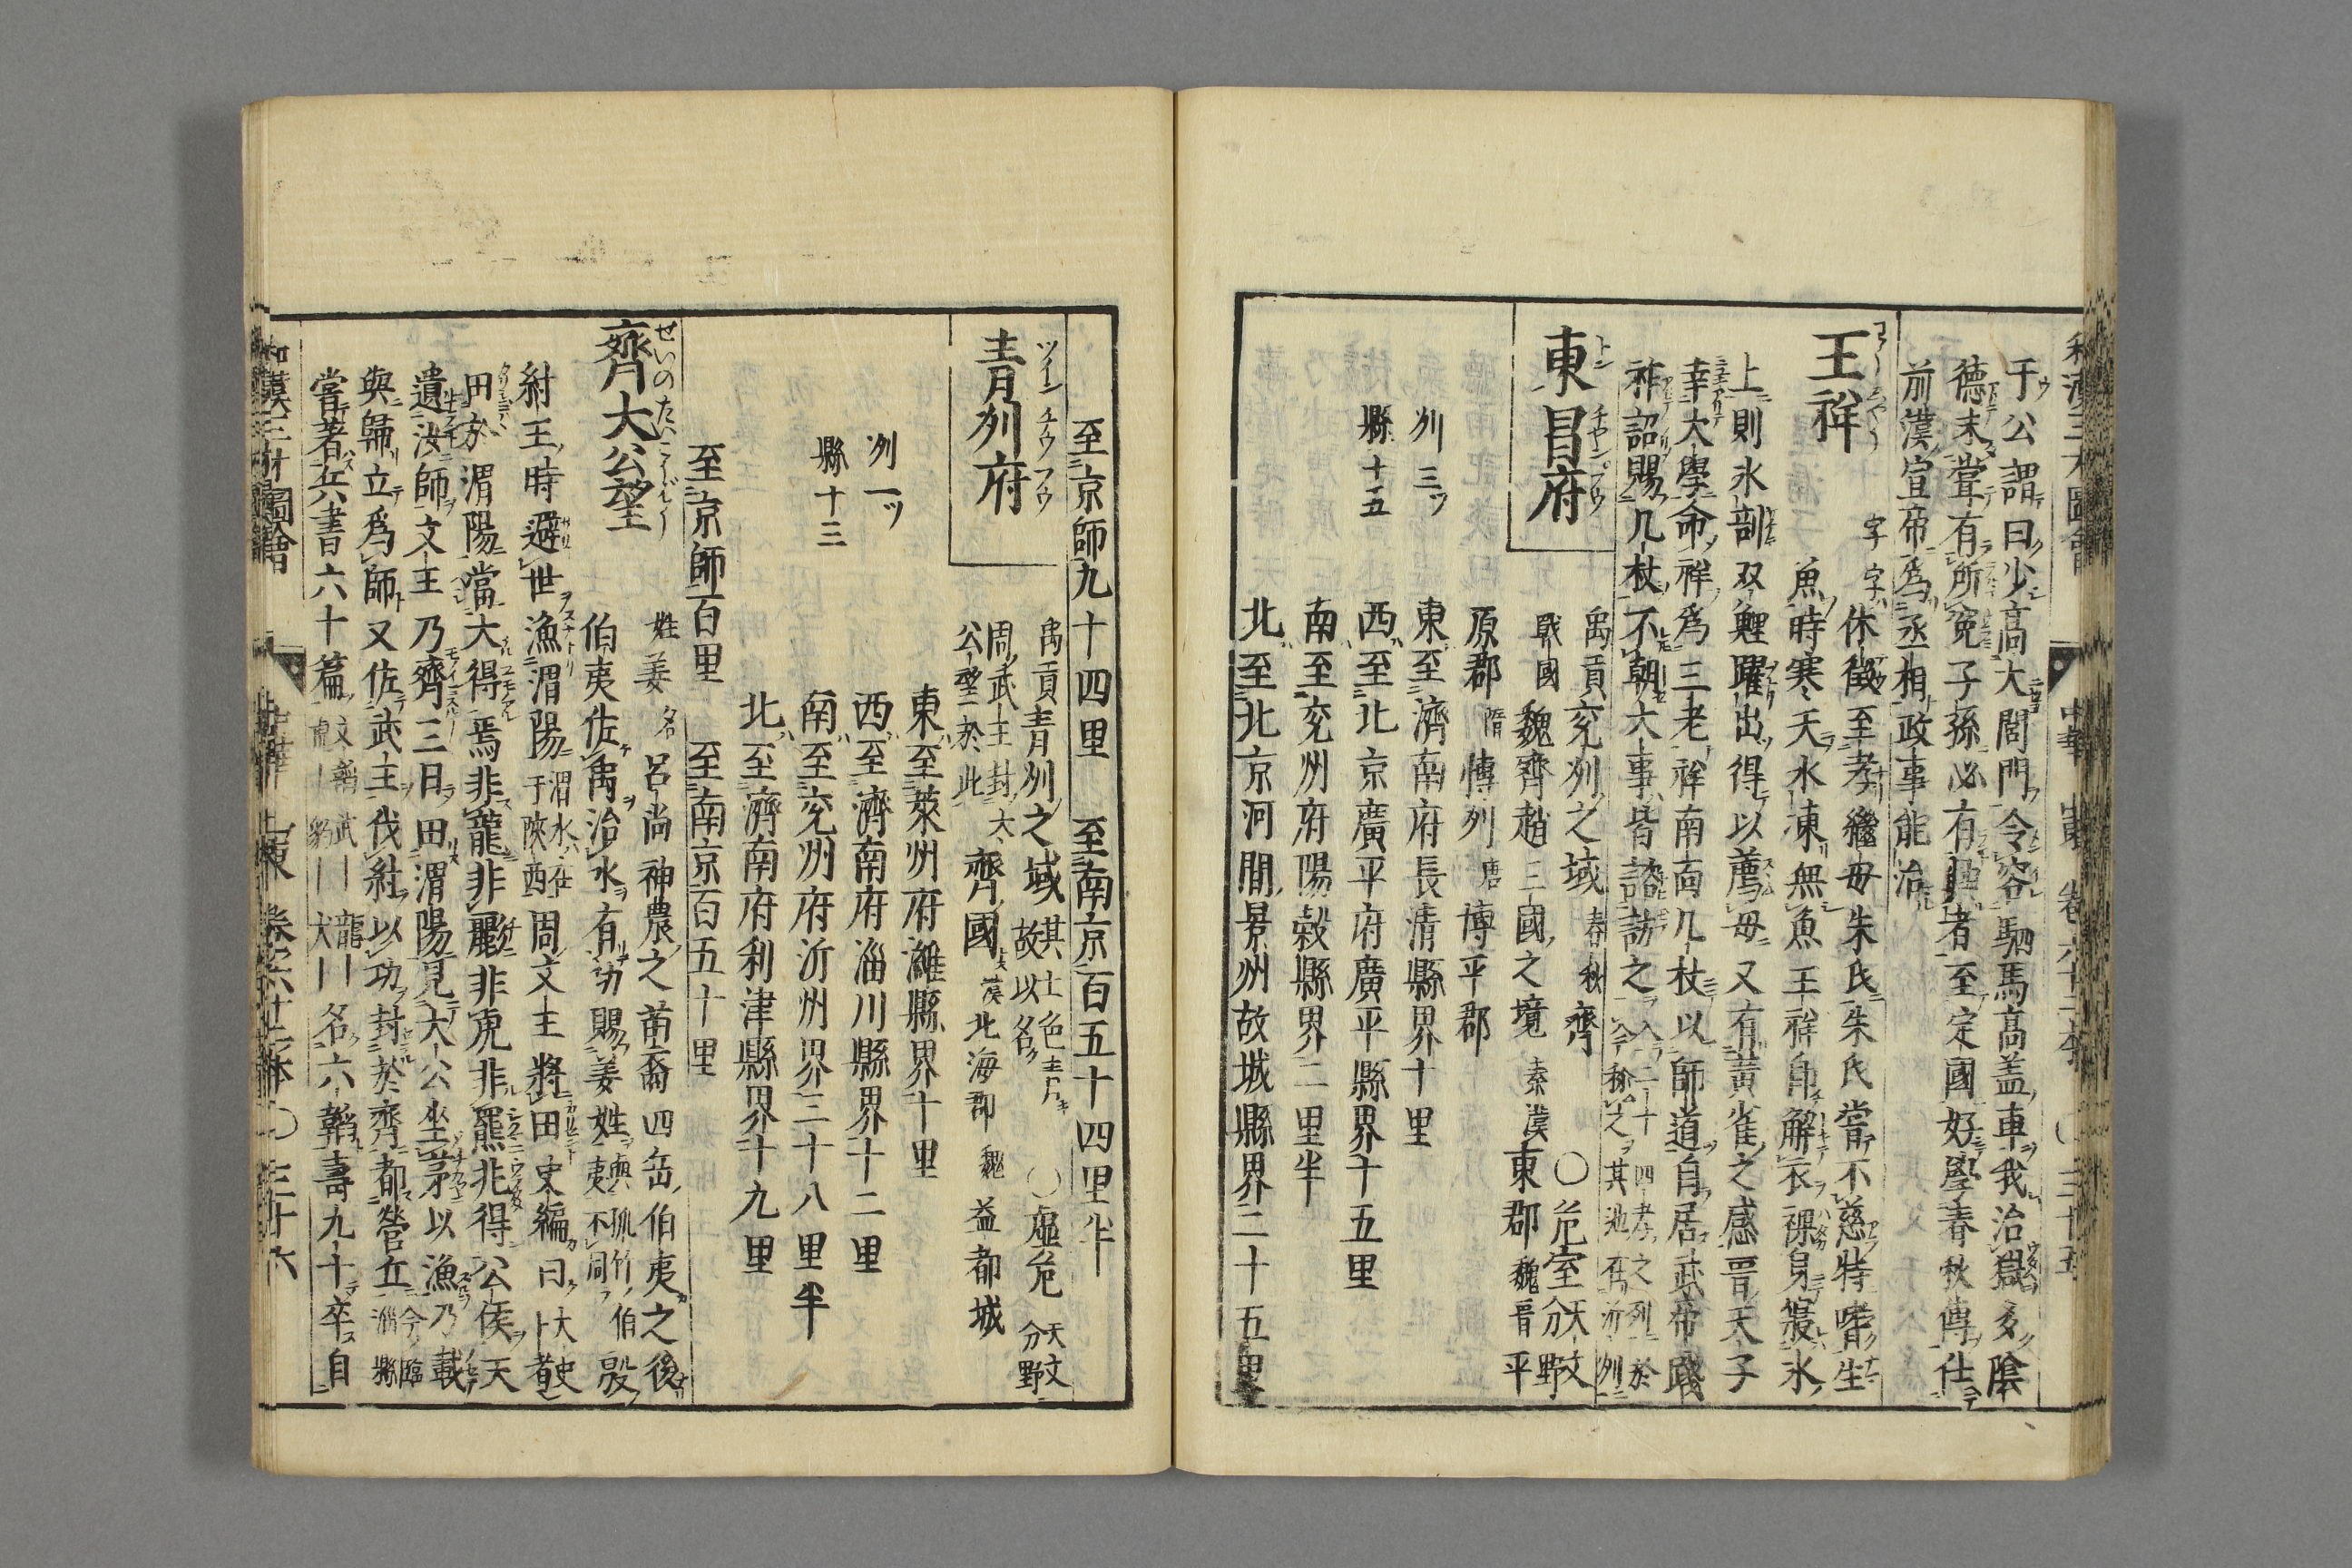 和漢三才圖會 中華 山東 卷六十二本 〇 三十五
于公謂曰少高大閭門令容駟馬高盖車我治獄多陰
德末嘗有所寃子孫必有興者至定國好學春秋傳仕
前漢宣帝爲丞相政事能治
王祥 わうしやう
字休徵至孝繼母朱氏朱氏嘗不慈特嗜生
魚時寒天氷凍無魚王祥自解衣裸身寢氷
上則氷剖双鯉躍出得以薦母又有黃雀之感晋天子
幸大學命祥爲三老祥南面几杖以師道自居武帝踐
祚詔賜几杖不朝大事皆諮訪之
東昌府 トンチヤンプウ
禹貢兖州之域 春秋齊 〇危室分野天文
戰國魏齊趙三國之境 秦漢東郡 魏晋平
原郡 隋博州 唐博平郡
州三ツ 東至濟南府長清縣界十里
縣十五 西至北京廣平府廣平縣界十五里
南至兖州府陽穀縣界二里半
北至北京河間景州故城縣界二十五里
至京師九十四里 至南京百五十四里半
青州府 ツインチウフウ
禹貢青州之域 其土色青故以名 〇虛危 天文分野
周武王封大公望於此 齊國 漢北海郡 魏益都城
州一ツ 東至萊州府濰縣界十里
縣十三 西至濟南府淄川縣界十二里
南至兖州府沂州界三十八里半
北至濟南府利津縣界十九里
至京師百里 至南京百五十里
齊大公望 せいのたいこうばう
姓姜名呂尚神農之苗裔四岳伯夷之後
伯夷佐禹治水有功賜姜姓 與孤竹伯夷不同 殷
紂王時避世漁渭陽 渭水在于陝西 周文王將田史編曰 大史卜者
田於渭陽當大得焉非龍非彲非虎非羆非得公侯天
遺汝師文王乃齊三日田渭陽見大公坐茅以漁乃載
與歸立爲師又佐武王伐紂以功封於齊都營丘 今臨淄縣
嘗著兵書六十篇 文韜武〡龍〡虎〡豹〡犬〡 名六韜壽九十卒自
和漢三才圖會 中華 山東 卷六十二本 〇 三十六